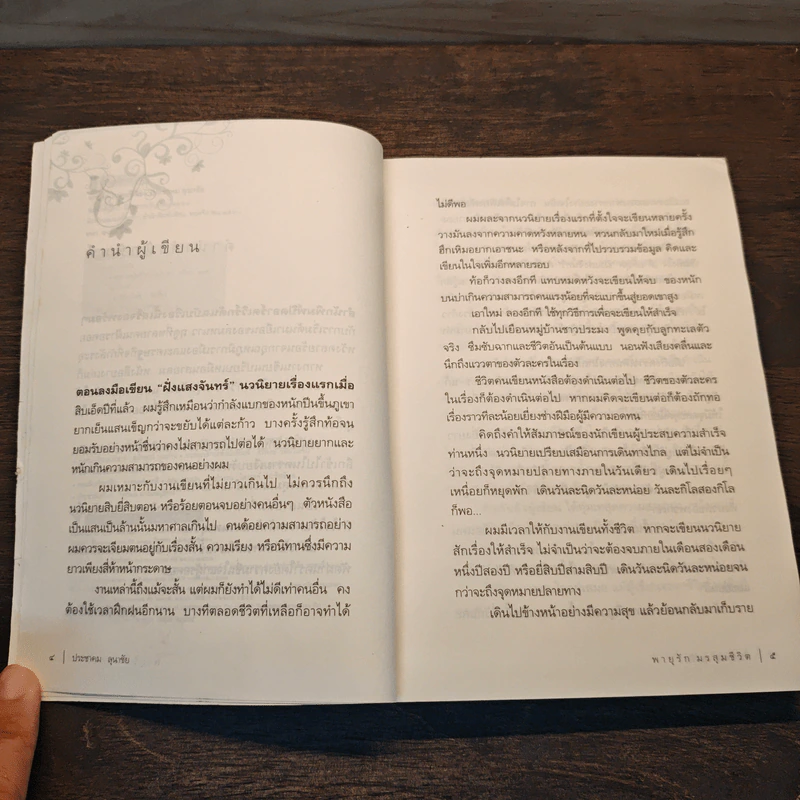 คำนำผู้เขียน
ตอนลงมือเขียน “ฝั่งแสงจันทร์” นวนิยายเรื่องแรกเมื่อ
สิบเอ็ดปีที่แล้ว ผมรู้สึกเหมือนว่ากำลังแบกของหนักปีนขึ้นภูเขา
ยากเย็นแสนเข็ญกว่าจะขยับได้แต่ละก้าว บางครั้งรู้สึกท้อจน
ยอมรับอย่างหน้าชื่นว่าคงไม่สามารถไปต่อได้ นวนิยายยากและ
หนักเกินความสามารถของคนอย่างผม
ผมเหมาะกับงานเขียนที่ไม่ยาวเกินไป ไม่ควรนึกถึง
นวนิยายสิบยี่สิบตอน หรือร้อยตอนจบอย่างคนอื่นๆ ตัวหนังสือ
เป็นแสนเป็นล้านนั้นมหาศาลเกินไป คนด้อยความสามารถอย่าง
ผมควรจะเจียมตนอยู่กับเรื่องสั้น ความเรียง หรือนิทานซึ่งมีความ
ยาวเพียงสี่ห้าหน้ากระดาษ
งานเหล่านี้ถึงแม้จะสั้น แต่ผมก็ยังทำได้ไม่ดีเท่าคนอื่น คง
ต้องใช้เวลาฝึกฝนอีกนาน บางทีตลอดชีวิตที่เหลือก็อาจทำได้
๔ | ประชาคม ลุนาชัย
ไม่ดีพอ
ผมผละจากนวนิยายเรื่องแรกที่ตั้งใจจะเขียนหลายครั้ง
วางมันลงจากความคาดหวังหลายหน หวนกลับมาใหม่เมื่อรู้สึก
ฮึกเหิมอยากเอาชนะ หรือหลังจากที่ไปรวบรวมข้อมูล คิดและ
เขียนในใจเพิ่มอีกหลายรอบ
ท้อก็วางลงอีกที แทบหมดหวังจะเขียนให้จบ ของหนัก
บนบ่าเกินความสามารถคนแรงน้อยที่จะแบกขึ้นสู่ยอดเขาสูง
เอาใหม่ ลองอีกที ใช้ทุกวิธีการเพื่อจะเขียนให้สำเร็จ
กลับไปเยือนหมู่บ้านชาวประมง พูดคุยกับลูกทะเลตัว
จริง ซึมซับฉากและชีวิตอันเป็นต้นแบบ นอนฟังเสียงคลื่นและ
นึกถึงแววตาของตัวละครในเรื่อง
ชีวิตคนเขียนหนังสือต้องดำเนินต่อไป ชีวิตของตัวละคร
ในเรื่องก็ต้องดำเนินต่อไป หากผมคิดจะเขียนต่อก็ต้องถักทอ
เรื่องราวทีละน้อยเยี่ยงช่างฝีมือผู้มีความอดทน
คิดถึงคำให้สัมภาษณ์ของนักเขียนผู้ประสบความสำเร็จ
ท่านหนึ่ง นวนิยายเปรียบเสมือนการเดินทางไกล แต่ไม่จำเป็น
ว่าจะถึงจุดหมายปลายทางภายในวันเดียว เดินไปเรื่อยๆ
เหนื่อยก็หยุดพัก เดินวันละนิดวันละหน่อย วันละกิโลสองกิโล
ก็พอ...
ผมมีเวลาให้กับงานเขียนทั้งชีวิต หากจะเขียนนวนิยาย
สักเรื่องให้สำเร็จ ไม่จำเป็นว่าจะต้องจบภายในเดือนสองเดือน
หนึ่งปีสองปี หรือยี่สิบปีสามสิบปี เดินวันละนิดวันละหน่อยจน
กว่าจะถึงจุดหมายปลายทาง
เดินไปข้างหน้าอย่างมีความสุข แล้วย้อนกลับมาเก็บราย
พายุรัก มรสุมชีวิต | ๕